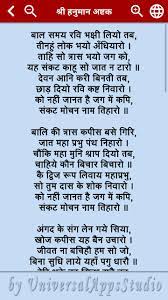 श्री हनुमान अष्टक
बाल समय रवि भक्षी लियो तब,
तीनहुं लोक भयो अंधियारो ।
ताहि सो त्रास भयो जग को,
यह संकट काहु सो जात न टारो ॥
देवन आनि करी बिनती तब,
छाड़ दियो रवि कष्ट निवारो ।
को नहीं जानत है जग में कपि,
संकट मोचन नाम तिहारो ॥
बालि की त्रास कपीस बसे गिरि,
जात महा प्रभु पंथ निहारो ।
चौंकि महा मुनि श्राप दियो तब,
चाहिये कौन बिचार बिचारो ॥
के द्विज रूप लिवाय महाप्रभु,
सो तुम दास के शोक निवारो ।
को नहीं जानत है जग में कपि,
संकट मोचन नाम तिहारो ॥
अंगद के संग लेन गये सिया,
खोज कपीस यह बैन उचारो ।
जीवत ना बचिहौ हम सो जो,
बिना सुधि लाये यहाँ पगु धारो ॥
by UniversalAppsStudio